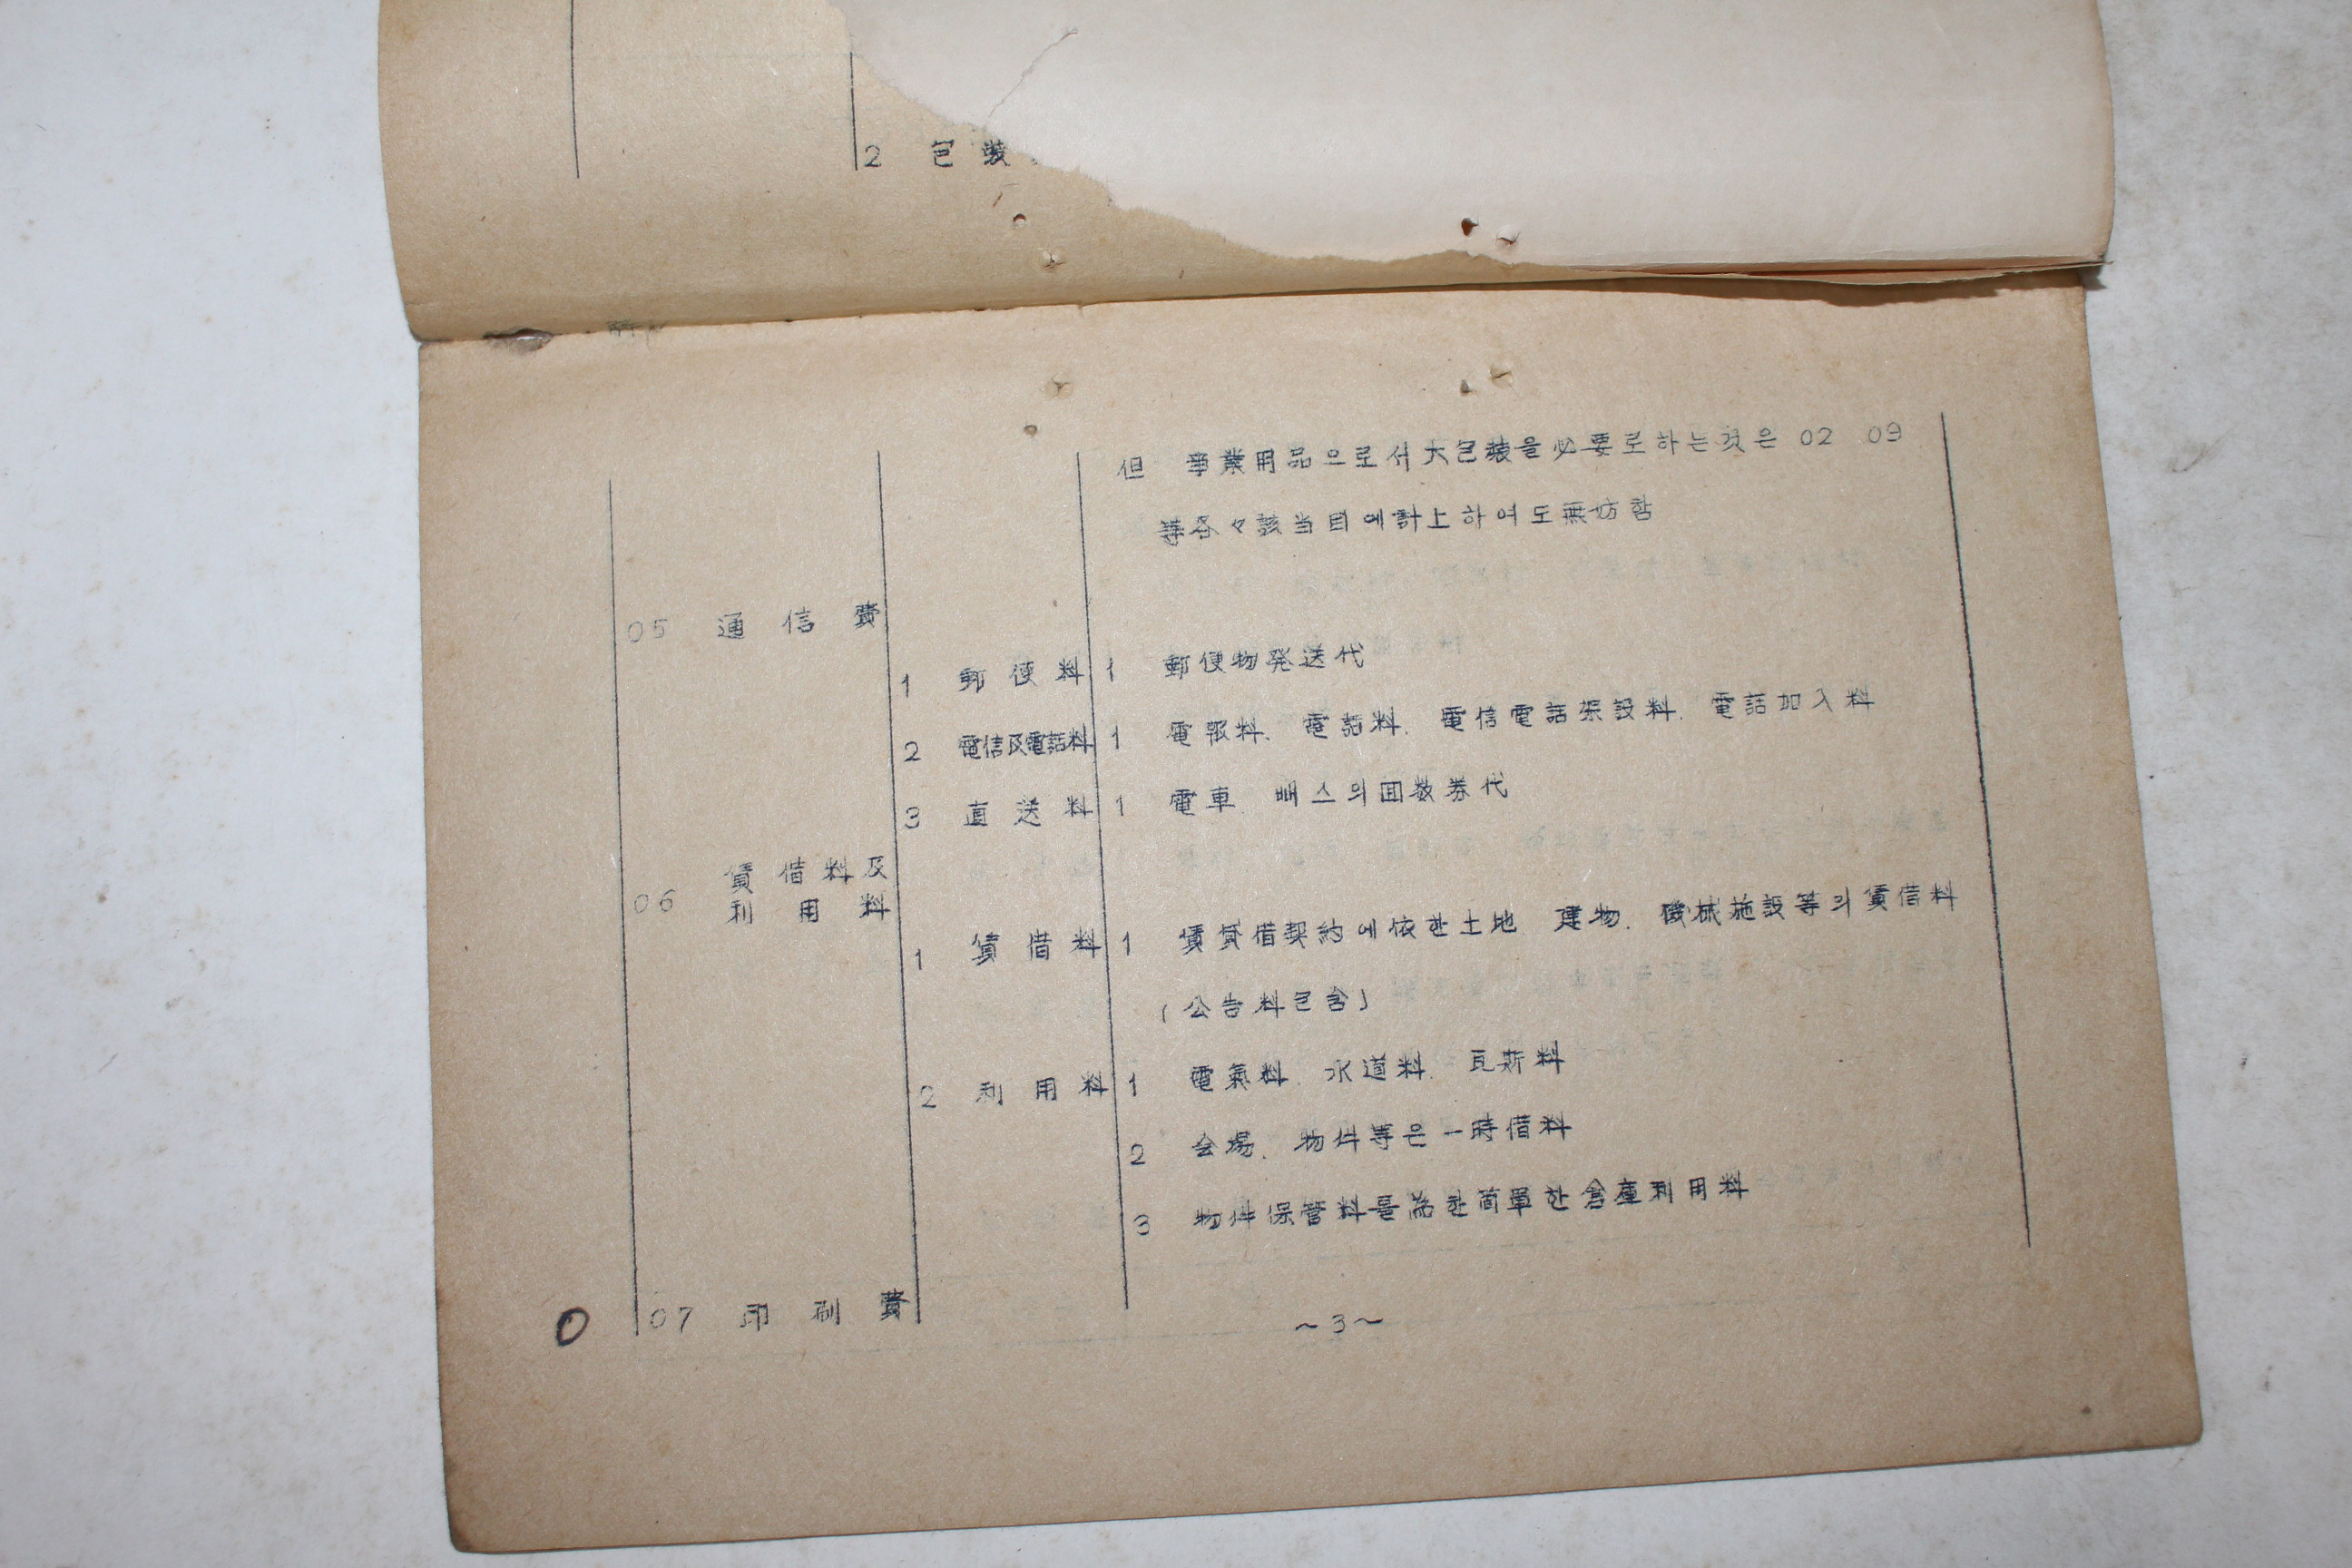 2 包裝
但 事業用品으로서大包裝을必要로하는것은 02 09
等各々該当目에計上하여도無妨함
05 通信費
1 郵便料 1 郵便物発送代
2 電信及電話料 1 電報料、電話料、電信電話架設料、電話加入料
3 直送料 1 電車 뻐스의囬数券代
06 賃借料及
利用料
1 賃借料 1 賃貸借契約에依한土地 建物、機械施設等의賃借料
(公告料包含)
2 利用料 1 電氣料、水道料、瓦斯料
2 会場、物件等은一時借料
3 物件保管料를為한簡單한倉庫利用料
07 印刷費
~3~
0